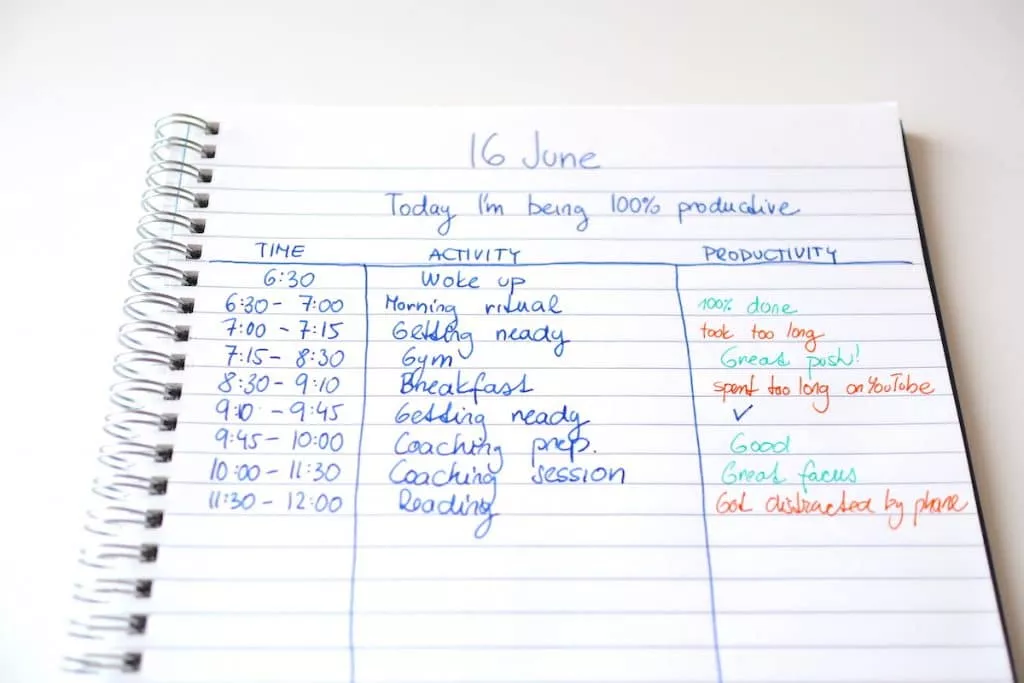 16 June
Today I'm being 100% productive
TIME ACTIVITY PRODUCTIVITY
6:30 Woke up
6:30 - 7:00 Morning ritual 100% done
7:00 - 7:15 Getting ready took too long
7:15 - 8:30 Gym Great push!
8:30 - 9:10 Breakfast spent too long on YouTube
9:10 - 9:45 Getting ready ✓
9:45 - 10:00 Coaching prep. Good
10:00 - 11:30 Coaching session Great focus
11:30 - 12:00 Reading Got distracted by phone